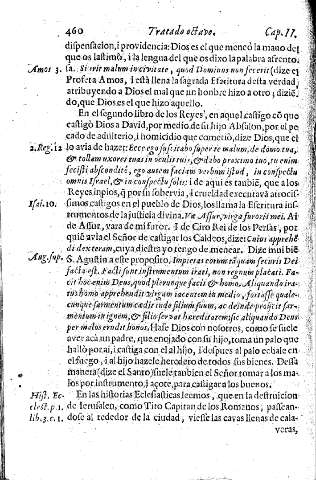 460 Tratado octavo. Cap. II.
dispensacion, i providencia: Dios es el que menèò la mano del
que os lastimò, i la lengua del que os dixo la palabra afrentosa.
Amos 3. Si erit malum in civitate, quod Dominus non fecerit (dize el
Profeta Amos, i està llena la sagrada Escritura desta verdad,
atribuyendo a Dios el mal que un hombre hizo a otro; dizien
do, que Dios es el que hizo aquello.
En el segundo libro de los Reyes, en aquel castigo cō que
castigò Dios a David, por medio de su hijo Absalon, por el pe
cado de adulterio, i homicidio que cometiò, dize Dios, que el
2. Reg. 12 lo avia de hazer: Ecce ego suscitabo super te malum, de domo tua,
& tollam uxores tuas in oculis tuis, & dabo proximo tuo, tu enim
fecisti abscondite, ego autem faciam verbum istud, in conspectu
omnis Israel, & in conspectu solis: i de aqui es tambiē, que a los
Reyes impios, q̄ por su sobervia, i crueldad executavā atroci-
Isai. 10. simos castigos en el pueblo de Dios, los llama la Escritura ins-
trumentos de la justicia divina. Væ Assur, virga furoris mei. Ai
de Assur, vara de mi furor. I de Ciro Rei de los Persas, por
quiē avia el Señor de castigar los Caldeos, dize: Cuius apprehē
di dexteram, cuya diestra yo tengo de menear. Dize mui biē
Aug. sup. S. Agustin a este proposito, Impietas eorum tāquam securis Dei
facta est. Facti sunt instrumentum irati, non regnum placati. Fa-
cit hoc enim Deus, quod plerunque facit & homo. Aliquando ira-
tus homo apprehendit virgam iacentem in medio, fortasse quale-
cunque sarmentum cædit inde filium suum, ac deinde proiicit sar-
mentum in ignem, & filio servat hæreditatem: sic aliquando Deus
per malos erudit bonos. Hase Dios con nosotros, como se suele
aver acà un padre, que enojado con su hijo, toma un palo que
hallò por aì, i castiga con el al hijo, i despues al palo echale en
el fuego, i al hijo hazelo heredero de todos sus bienes. Desta
manera (dize el Santo) suele tambien el Señor tomar a los ma-
los por instrumento, i açote, para castigar a los buenos.
Hist. Ec- En las historias Eclesiasticas leemos, que en la destruicion
clest. p. 1. de Ierusalen, como Tito Capitan de los Romanos, passean-
lib. 3. c. 1. dose al rededor de la ciudad, viesse las cavas llenas de cala-
veras,